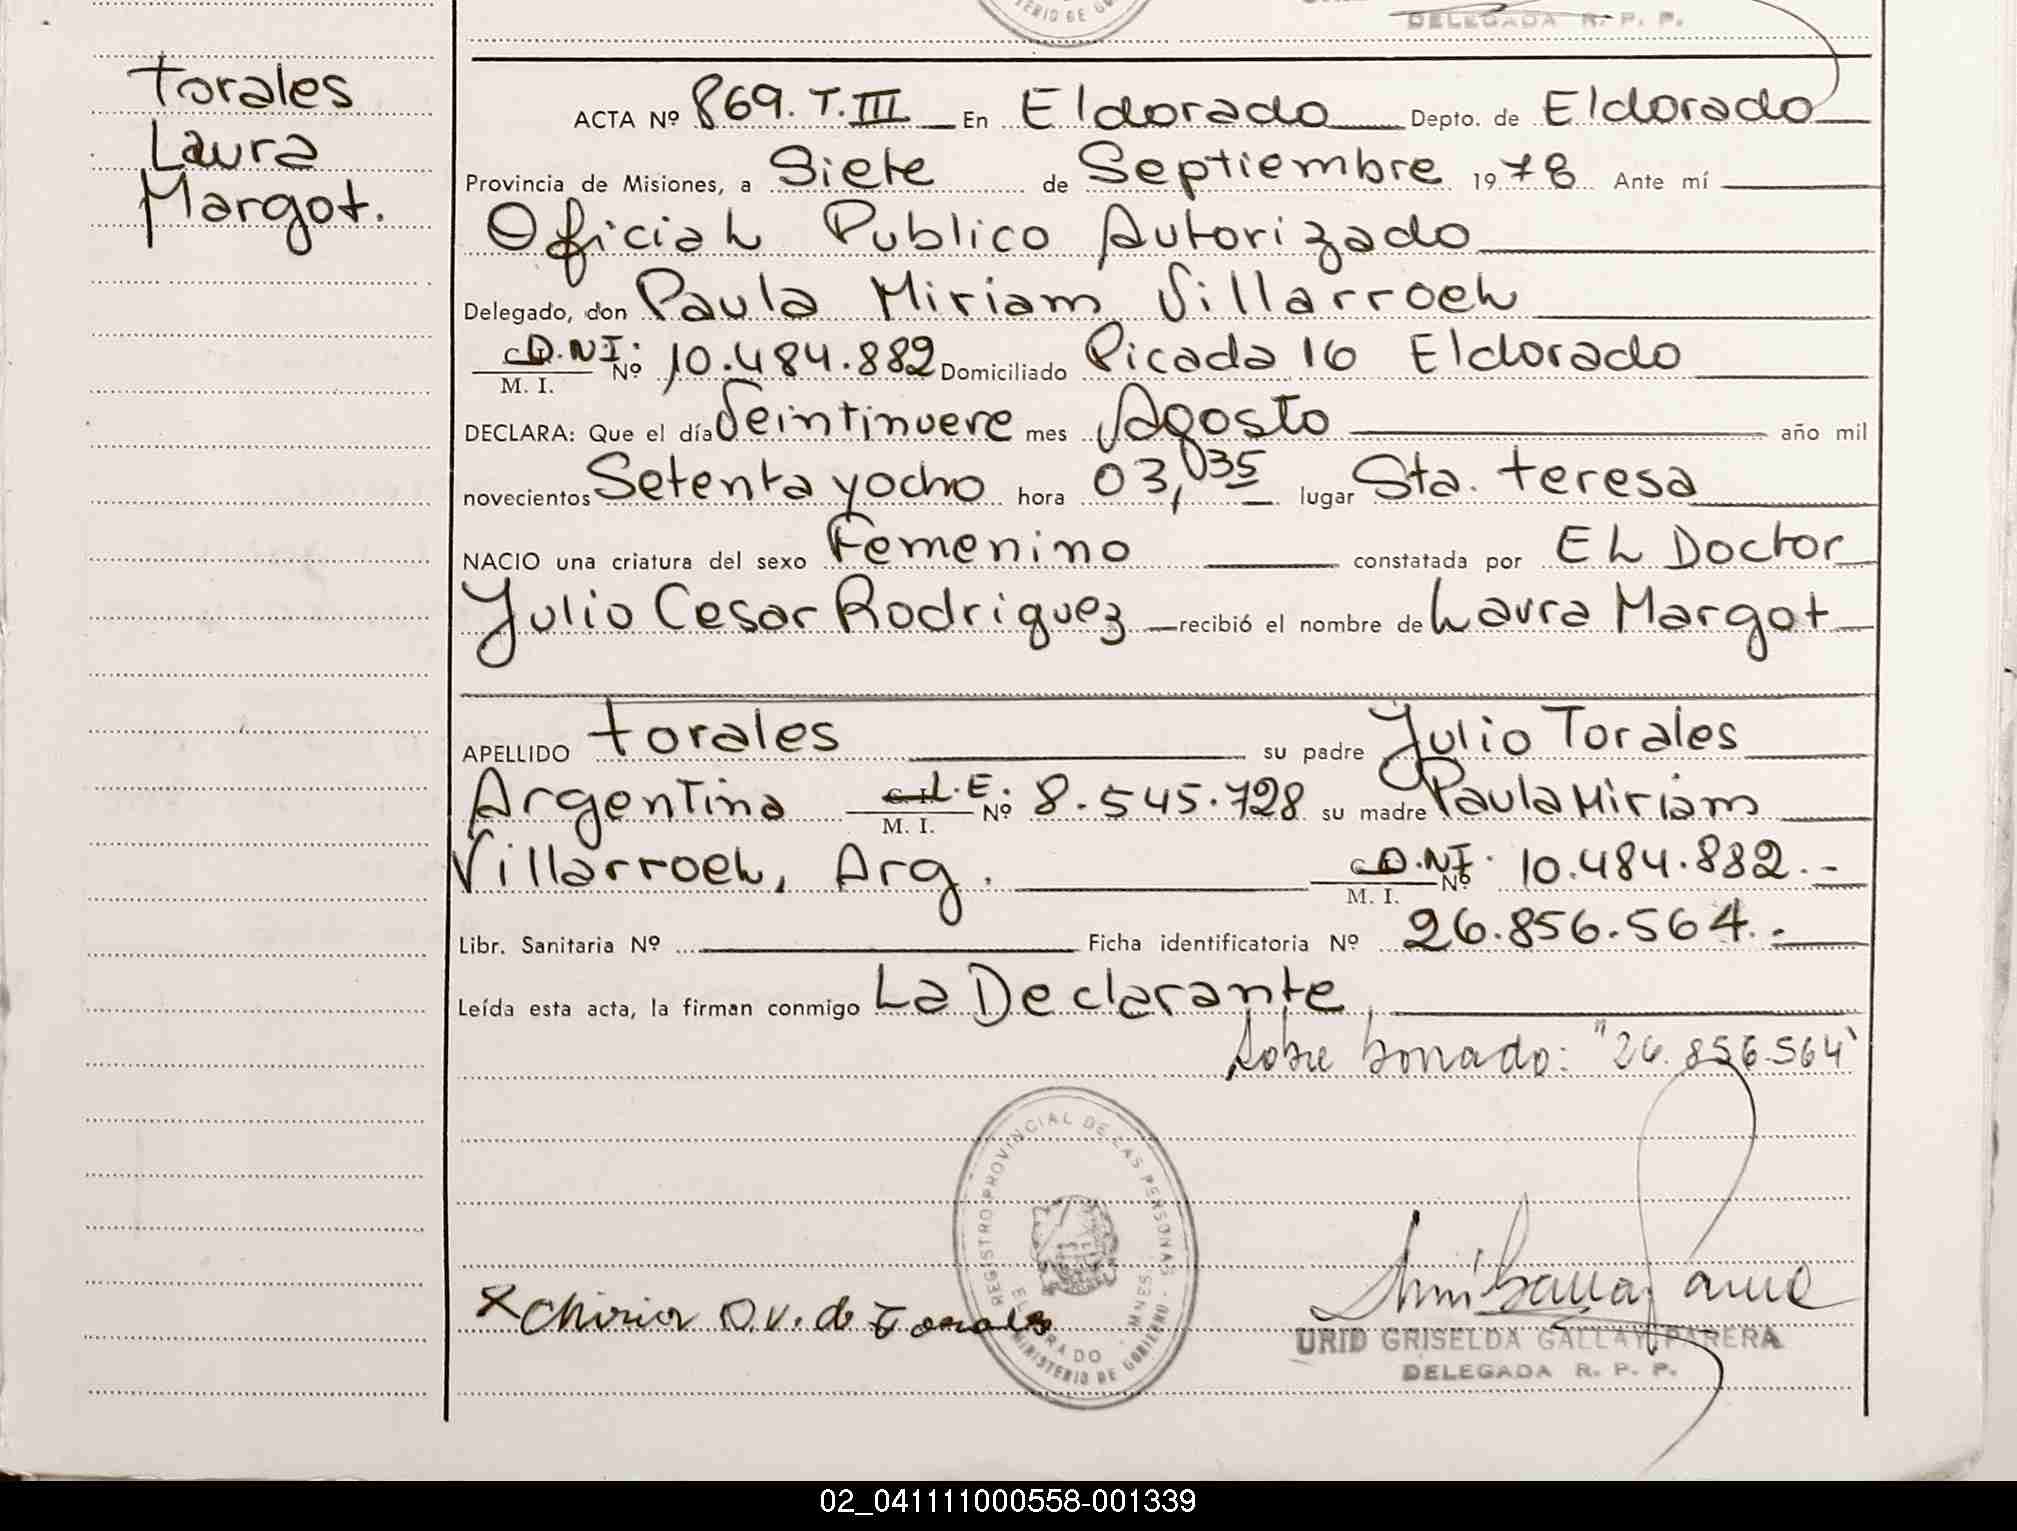 DELEGADA R. P. P.
Torales
Laura
Margot.
ACTA Nº 869. T. III En Eldorado Depto. de Eldorado
Provincia de Misiones, a Siete de Septiembre 1978 Ante mí
Oficial Publico Autorizado
Delegado, don Paula Miriam Villarroel
D.N.I. M. I. Nº 10.484.882 Domiciliado Picada 16 Eldorado
DECLARA: Que el día Veintinueve mes Agosto año mil
novecientos Setenta y ocho hora 03,035 lugar Sta. Teresa
NACIO una criatura del sexo Femenino constatada por El Doctor
Julio Cesar Rodriguez recibió el nombre de Laura Margot
APELLIDO Torales su padre Julio Torales
Argentina L.E. M. I. Nº 8.545.728 su madre Paula Miriam
Villarroel, Arg. D.N.I. M. I. Nº 10.484.882.-
Libr. Sanitaria Nº Ficha identificatoria Nº 26.856.564.-
Leída esta acta, la firman conmigo La Declarante
Sobre borrado: "26.856.564"
REGISTRO PROVINCIAL DE LAS PERSONAS
ELDORADO - MNES
MINISTERIO DE GOBIERNO
V. de Torales
URID GRISELDA GALLAY PARERA
DELEGADA R. P. P.
02_041111000558-001339